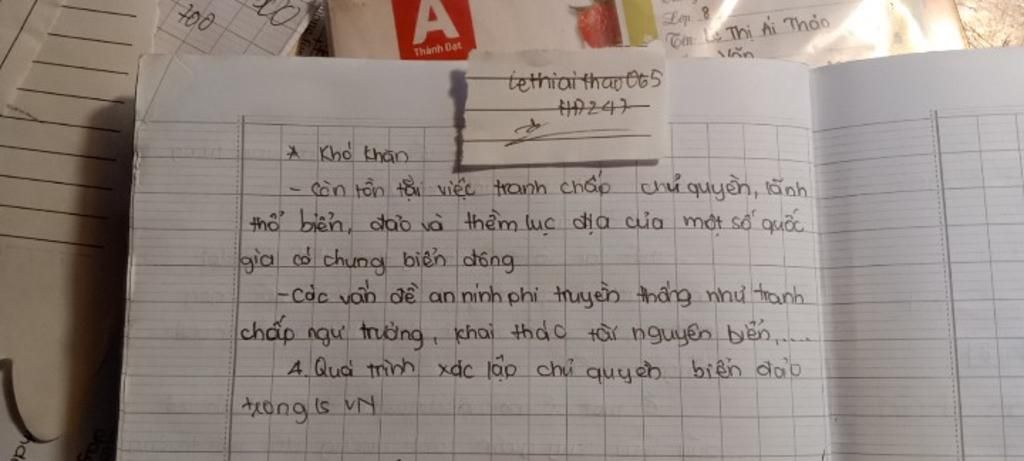 700
A
Thành Đạt
Lớp 8
Tên Lê Thị Ái Thảo
Văn
lethiaithao065
HD247
* Khó khăn
- Còn tồn tại việc tranh chấp chủ quyền, lãnh
thổ biển, đảo và thềm lục địa của một số quốc
gia có chung biển đông
- Các vấn đề an ninh phi truyền thống như tranh
chấp ngư trường, khai thác tài nguyên biển,....
4. Quá trình xác lập chủ quyền biển đảo
trong ls VN